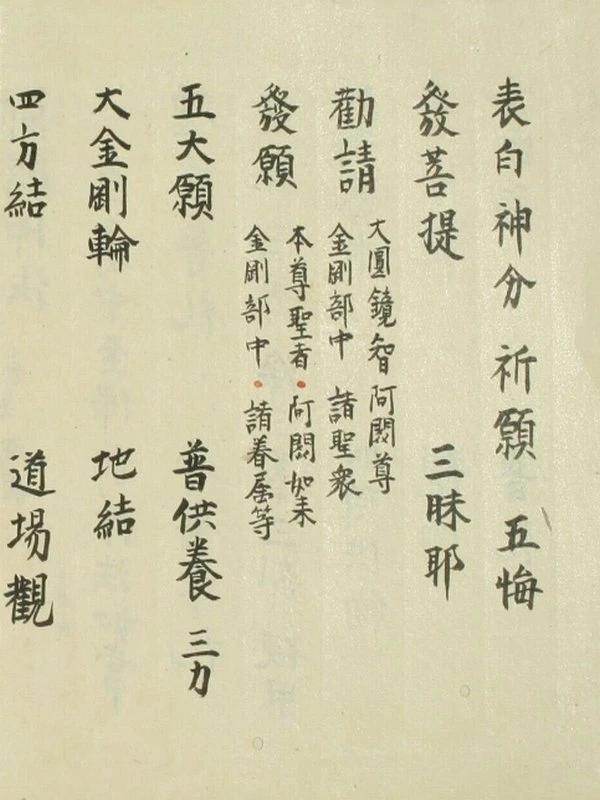 表白神分 祈願 五悔
發菩提 三昧耶
勸請
大圓鏡智阿閦尊
金剛部中 諸聖衆
發願
本尊聖者・阿閦如来
金剛部中・諸眷属等
五大願 普供養 三力
大金剛輪 地結
四方結 道場觀